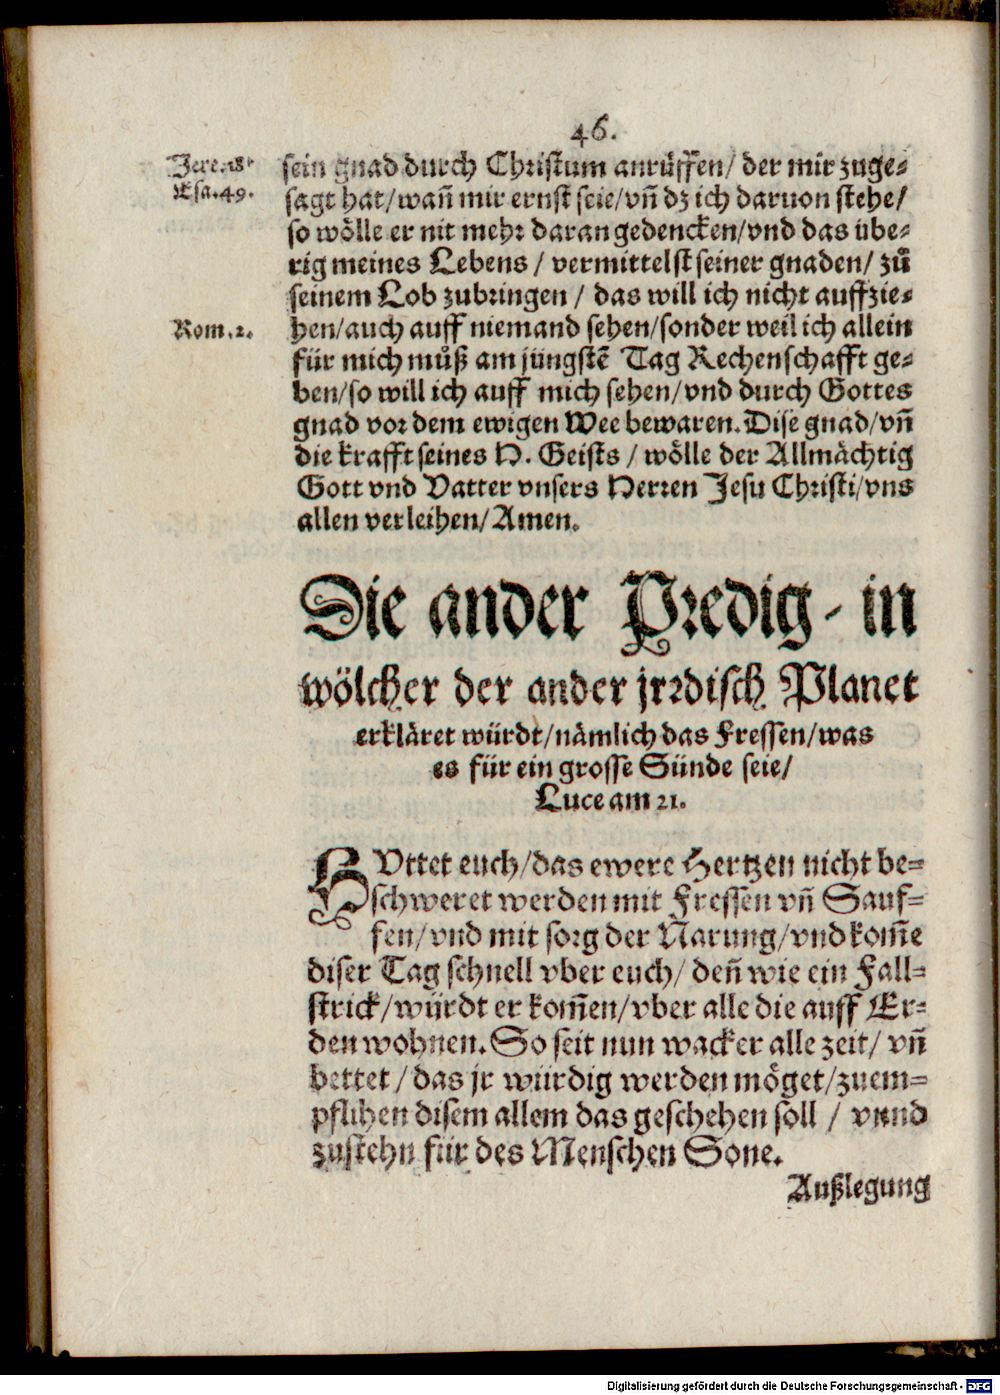 46.
Jere.18.
Esa.49.
sein gnad durch Christum anrůffen/ der mir zuge-
sagt hat/wañ mir ernst seie/vñ dz ich daruon stehe/
so wölle er nit mehr daran gedencken/vnd das übe-
rig meines Lebens / vermittelst seiner gnaden/ zů
seinem Lob zubringen / das will ich nicht auffzie-
Rom.2.
hen/auch auff niemand sehen/sonder weil ich allein
für mich můß am jüngstẽ Tag Rechenschafft ge-
ben/so will ich auff mich sehen/vnd durch Gottes
gnad vor dem ewigen Wee bewaren. Dise gnad/vñ
die krafft seines H. Geists / wölle der Allmächtig
Gott vnd Vatter vnsers Herren Jesu Christi/vns
allen verleihen/Amen.
Die ander Predig / in
wölcher der ander jrrdisch Planet
erkläret würdt/nämlich das Fressen/was
es für ein grosse Sünde seie/
Luce am 21.
HVttet euch/das ewere Hertzen nicht be-
schweret werden mit Fressen vñ Sauf-
fen/vnd mit sorg der Narung/vnd kom̃e
diser Tag schnell vber euch/ deñ wie ein Fall-
strick/würdt er kom̃en/vber alle die auff Er-
den wohnen. So seit nun wacker alle zeit/ vñ
bettet / das jr würdig werden möget/zuem-
pflihen disem allem das geschehen soll / vnnd
zustehn für des Menschen Sone.
Außlegung
Digitalisierung gefördert durch die Deutsche Forschungsgemeinschaft - DFG